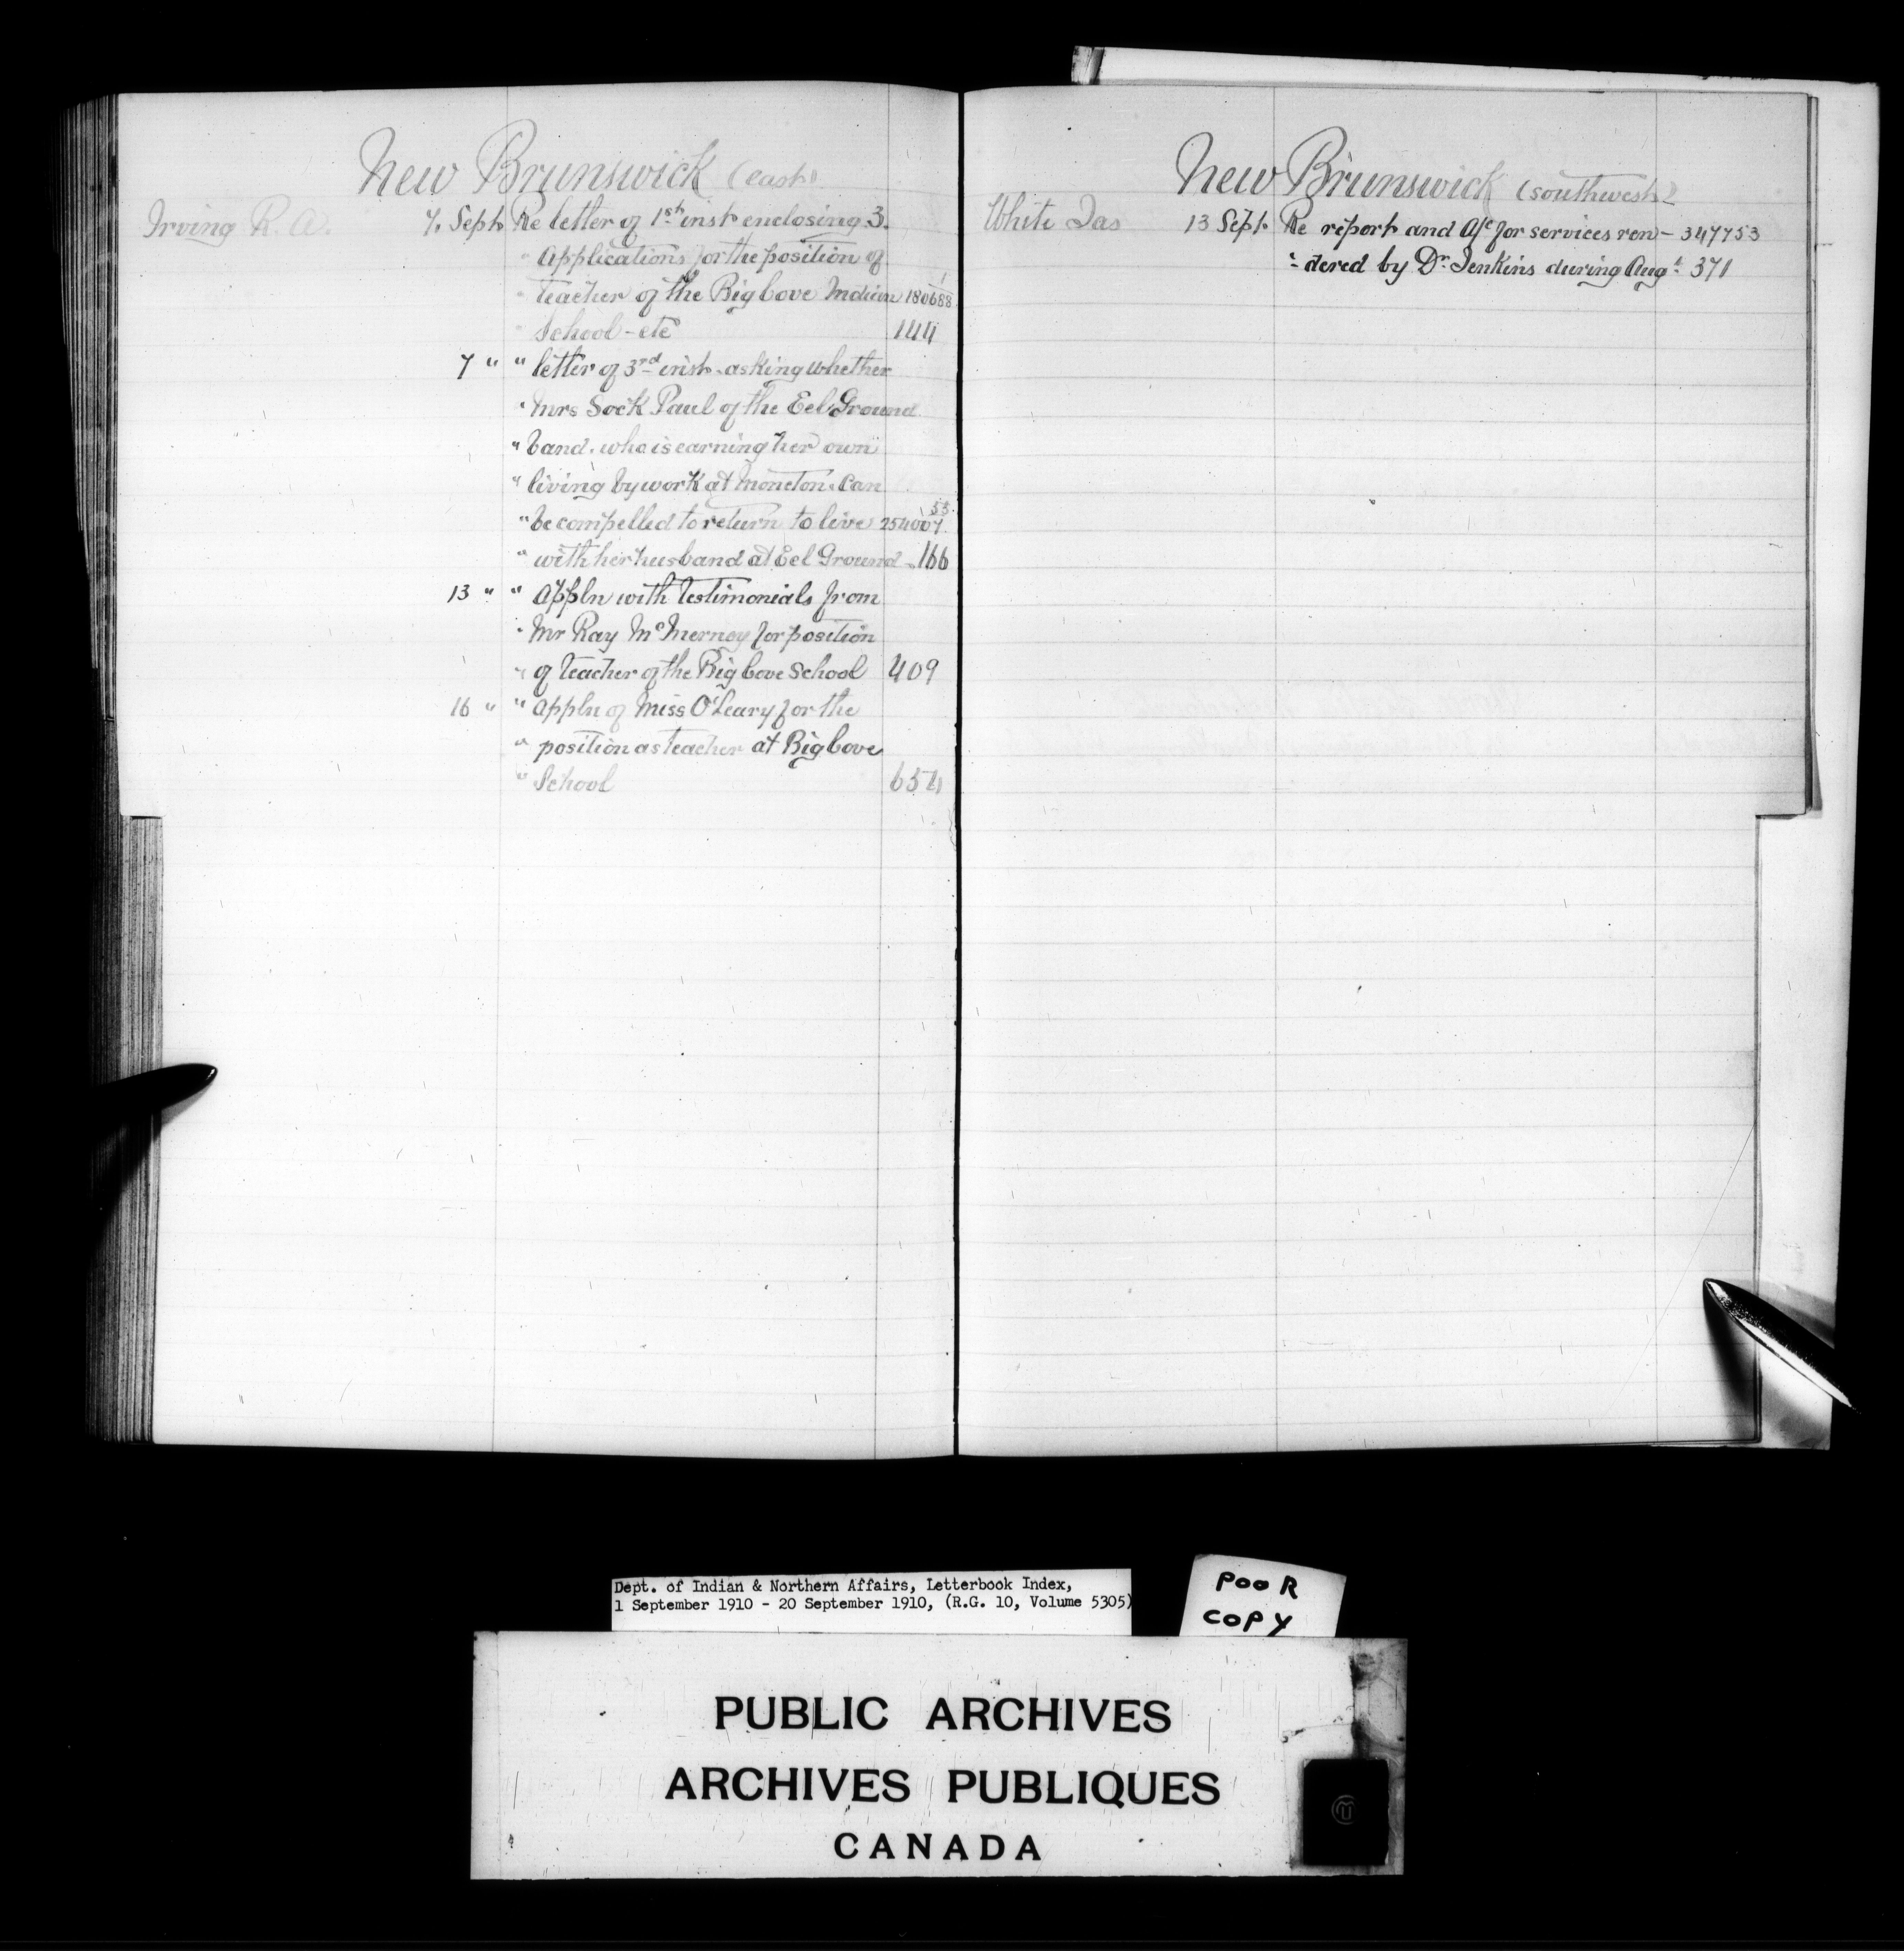 New Brunswick (east)
Irving R. A. 7. Sept. Re letter of 1st inst enclosing 3.
" Applications for the position of
" teacher of the Big Cove Indian 180688
" School - etc 144
7 " " letter of 3rd inst. asking whether
" Mrs Sock Paul of the Eel Ground
" band. who is earning her own
" living by work at Moncton. Can
" be compelled to return to live 254007
" with her husband at Eel Ground - 166
13 " " appln with testimonials from
" Mr Ray McInerney for position
" of teacher of the Big Cove School 409
16 " " appln of Miss O'Leary for the
" position as teacher at Big Cove
" School 654
New Brunswick (southwest)
White Jas 13 Sept. Re report and a/c for services ren- 347753
"-dered by Dr. Jenkins during Augt. 371
Dept. of Indian & Northern Affairs, Letterbook Index,
1 September 1910 - 20 September 1910, (R.G. 10, Volume 5305)
POOR
COPY
PUBLIC ARCHIVES
ARCHIVES PUBLIQUES
CANADA